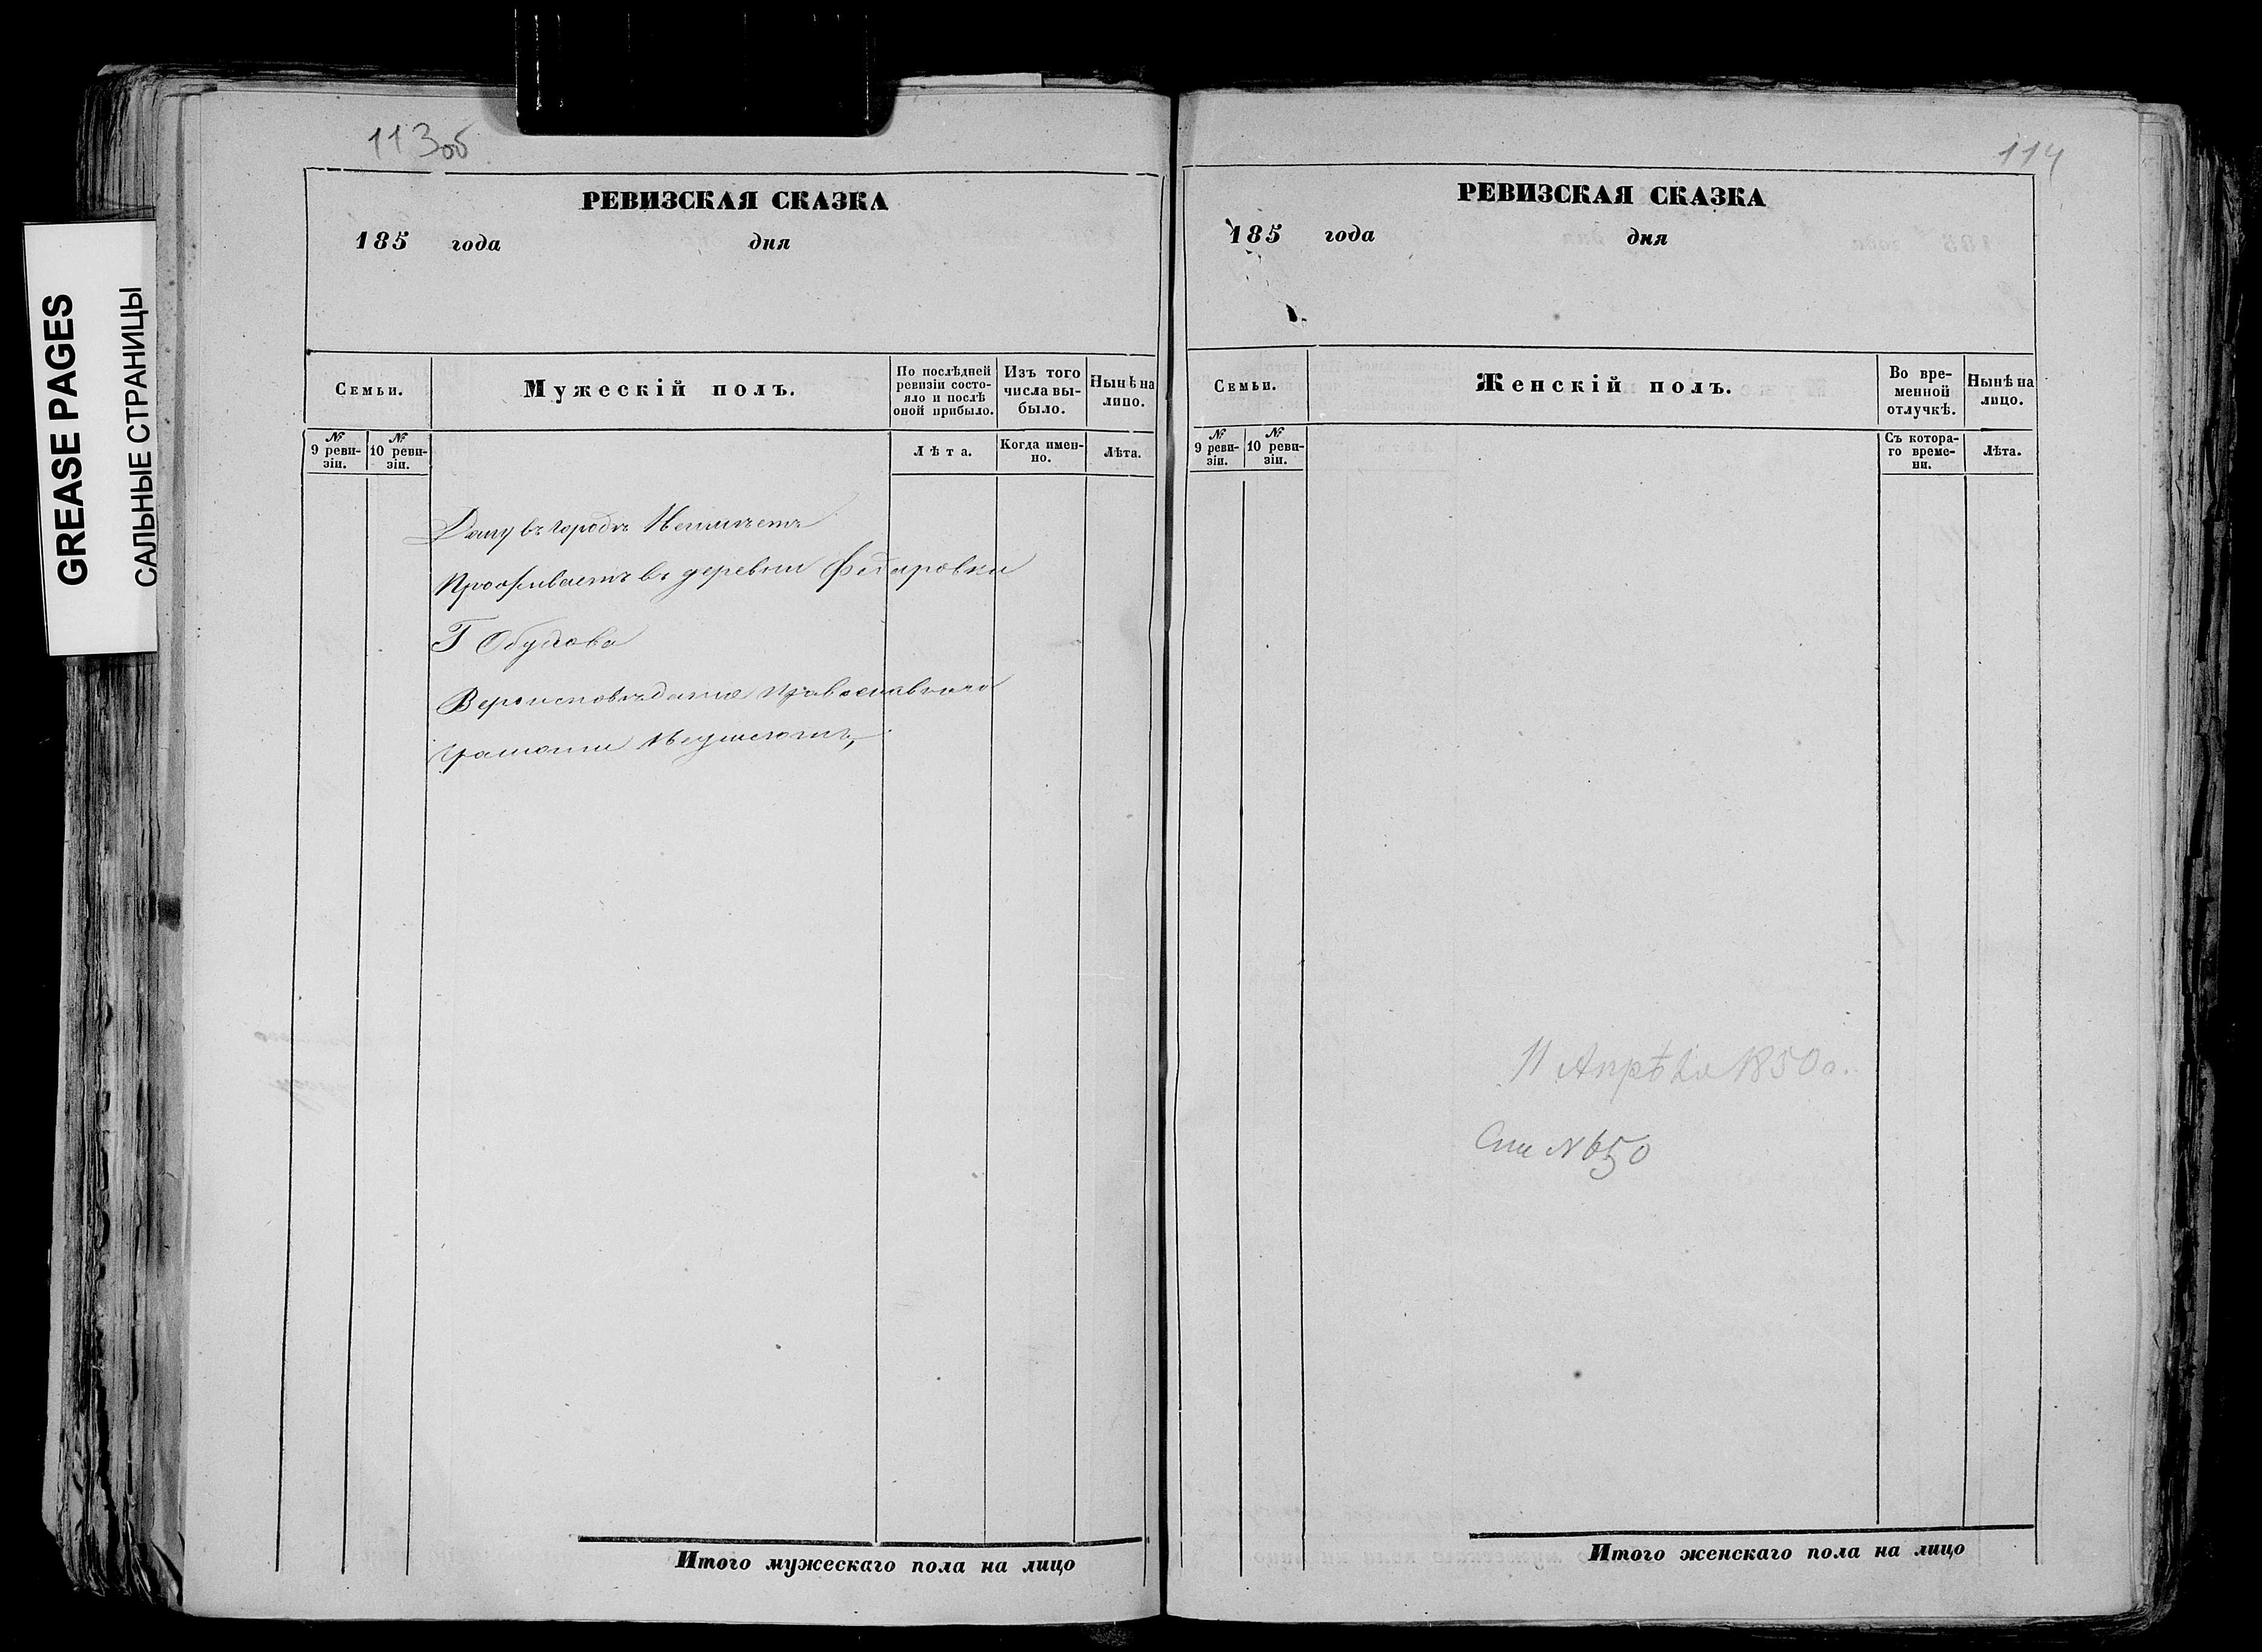 GREASE PAGES
САЛЬНЫЕ СТРАНИЦЫ
113об
РЕВИЗСКАЯ СКАЗКА
185 года дня
Семьи.
Мужескій полъ.
По послѣдней ревизіи состояло и послѣ оной прибыло.
Изъ того числа выбыло.
Нынѣ на лицо.
№ 9 ревизіи.
№ 10 ревизіи.
Лѣта.
Когда именно.
Лѣта.
Дому въ городѣ Неимѣетъ
Проживаетъ въ деревни Федаровки
Г
Вероисповѣдания православнаго
грамоти
Итого мужескаго пола на лицо
114
РЕВИЗСКАЯ СКАЗКА
185 года дня
Семьи.
Женскій полъ.
Во временной отлучкѣ.
Нынѣ на лицо.
№ 9 ревизіи.
№ 10 ревизіи.
Съ котораго времени.
Лѣта.
11 Апрѣля 1850 г.
N 650
Итого женскаго пола на лицо